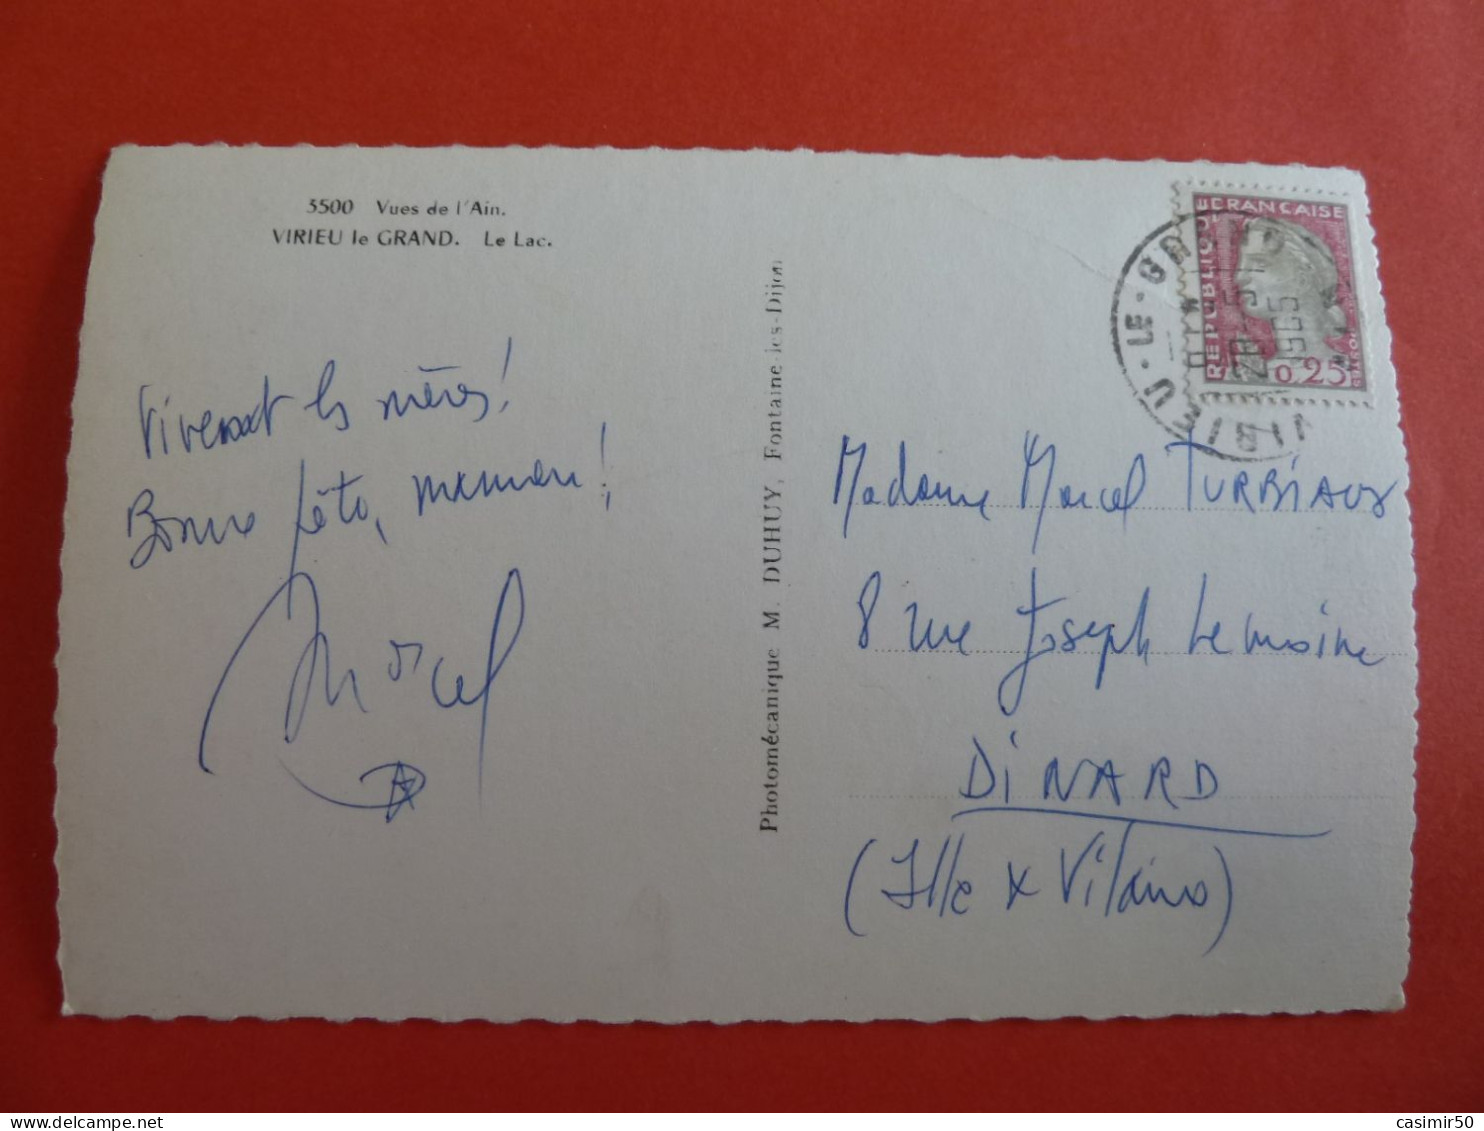 3500 Vues de l'Ain.
VIRIEU le GRAND. Le Lac.
Vivent les mères!
Bonne fête, maman!
Marcel
Photomécanique M. DUHUY, Fontaine-les-Dijon
REPUBLIQUE FRANCAISE
0,25
VIRIEU-LE-GRAND
AIN
28-5
1965
Madame Marcel TURBIAUX
8 rue Joseph Lemoine
DINARD
(Ille & Vilaine)
casimir50